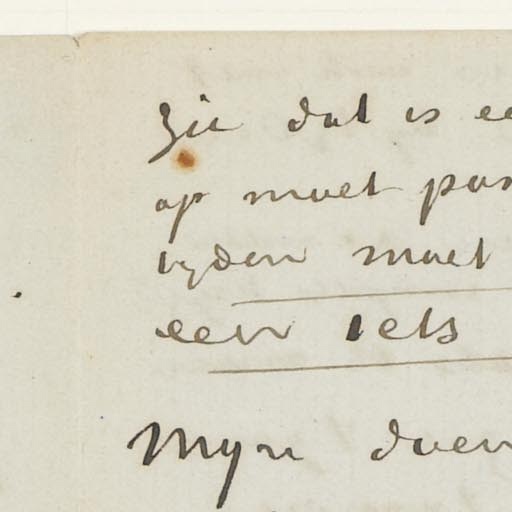 Zie dat is ee
op moet pas
lyden moet
een iets
Myn doen